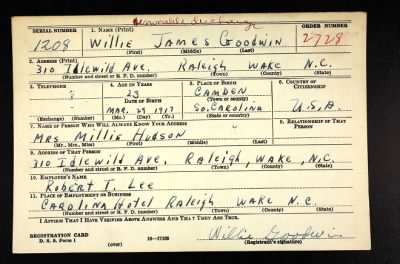 Honorable discharge
SERIAL NUMBER 1. NAME (Print) ORDER NUMBER
1208 Willie James Goodwin 2728
(First) (Middle) (Last)
2. ADDRESS (Print)
310 Idlewild Ave. Raleigh Wake N.C.
(Number and street or R. F. D. number) (Town) (County) (State)
3. TELEPHONE 4. AGE IN YEARS 5. PLACE OF BIRTH 6. COUNTRY OF CITIZENSHIP
23 Camden
DATE OF BIRTH (Town or county)
Mar. 29 1917 So. Carolina U.S.A.
(Exchange) (Number) (Mo.) (Day) (Yr.) (State or country)
7. NAME OF PERSON WHO WILL ALWAYS KNOW YOUR ADDRESS 8. RELATIONSHIP OF THAT PERSON
Mrs. Millie Hudson
(Mr., Mrs., Miss) (First) (Middle) (Last)
9. ADDRESS OF THAT PERSON
310 Idlewild Ave, Raleigh, Wake, N.C.
(Number and street or R. F. D. number) (Town) (County) (State)
10. EMPLOYER'S NAME
Robert I. Lee
11. PLACE OF EMPLOYMENT OR BUSINESS
Carolina Hotel Raleigh Wake N.C.
(Number and street or R. F. D. number) (Town) (County) (State)
I AFFIRM THAT I HAVE VERIFIED ABOVE ANSWERS AND THAT THEY ARE TRUE.
REGISTRATION CARD
D. S. S. Form 1 (over) 16—17105 Willie Goodwin
(Registrant's signature)